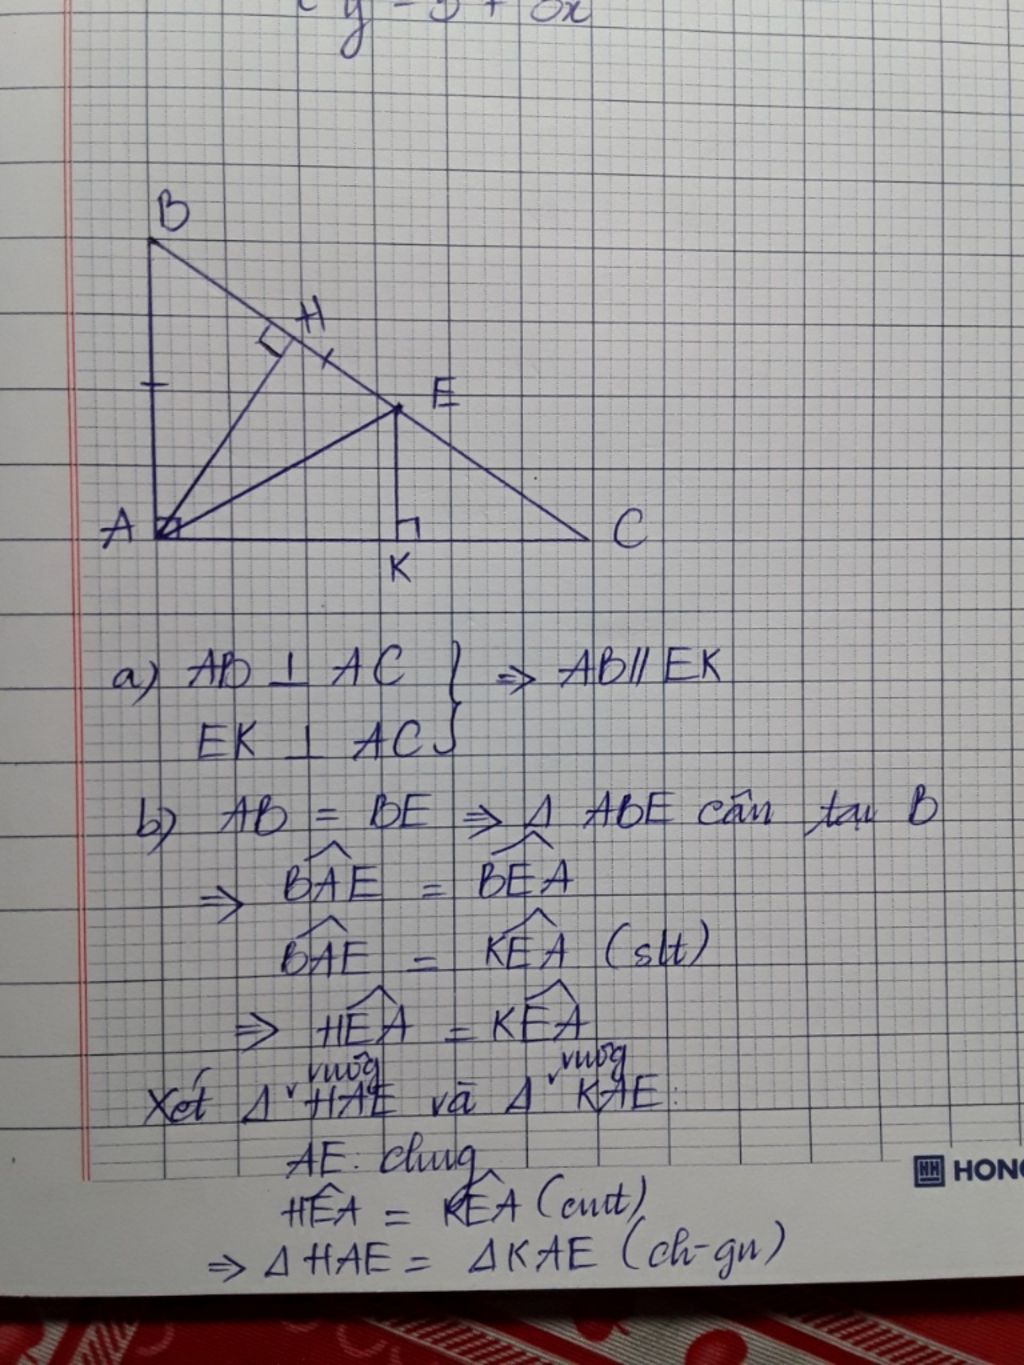 y = 5 + 3x
B
H
E
A
K
C
a) AB ⊥ AC } ⇒ AB // EK
EK ⊥ AC
b) AB = BE ⇒ Δ ABE cân tại B
⇒ BÂE = BÊA
BÂE = KÊA (slt)
⇒ HÊA = KÊA
Xét Δ vuôg HAE và Δ vuôg KAE:
AE: chung
HÊA = KÊA (cmt)
⇒ Δ HAE = Δ KAE (ch-gn)
HH HONG